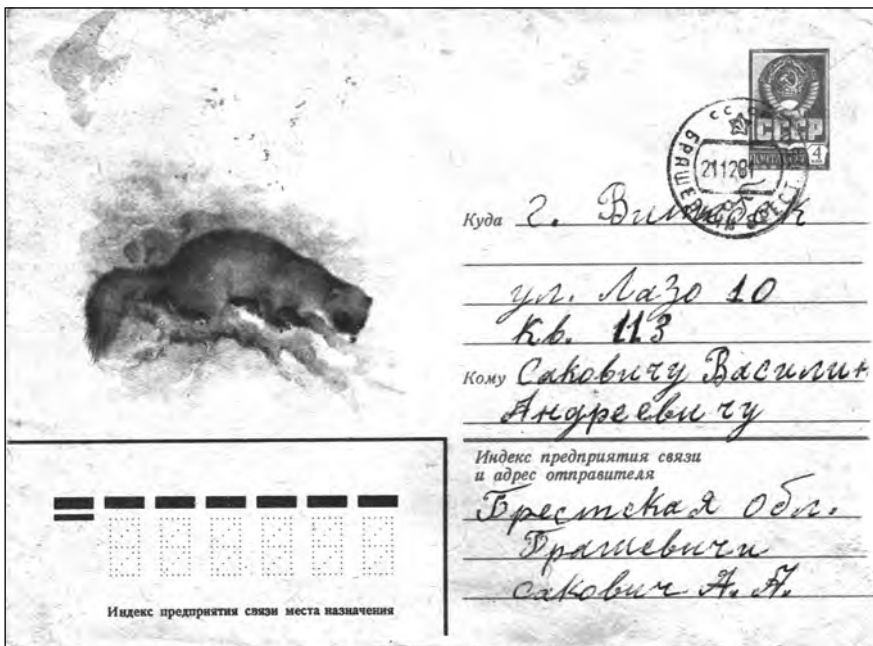 СССР
ПОЧТА
4
СССР
21 12 81
Куда г. Витебск
ул. Лазо 10
кв. 113
Кому Саковичу Василию
Андреевичу
Индекс предприятия связи
и адрес отправителя
Брестская обл.
Брашевичи
Сакович А. А.
Индекс предприятия связи места назначения